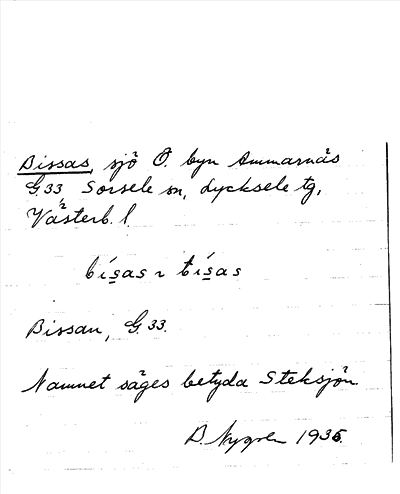 Bissas, sjö Ö. byn Ammarnäs
G.33 Sorsele sn, Lycksele tg,
Västerb. l.
bís̱as ~ tís̱as
Bissan, G.33.
Namnet säges betyda Steksjön.
B. Nygren 1935.